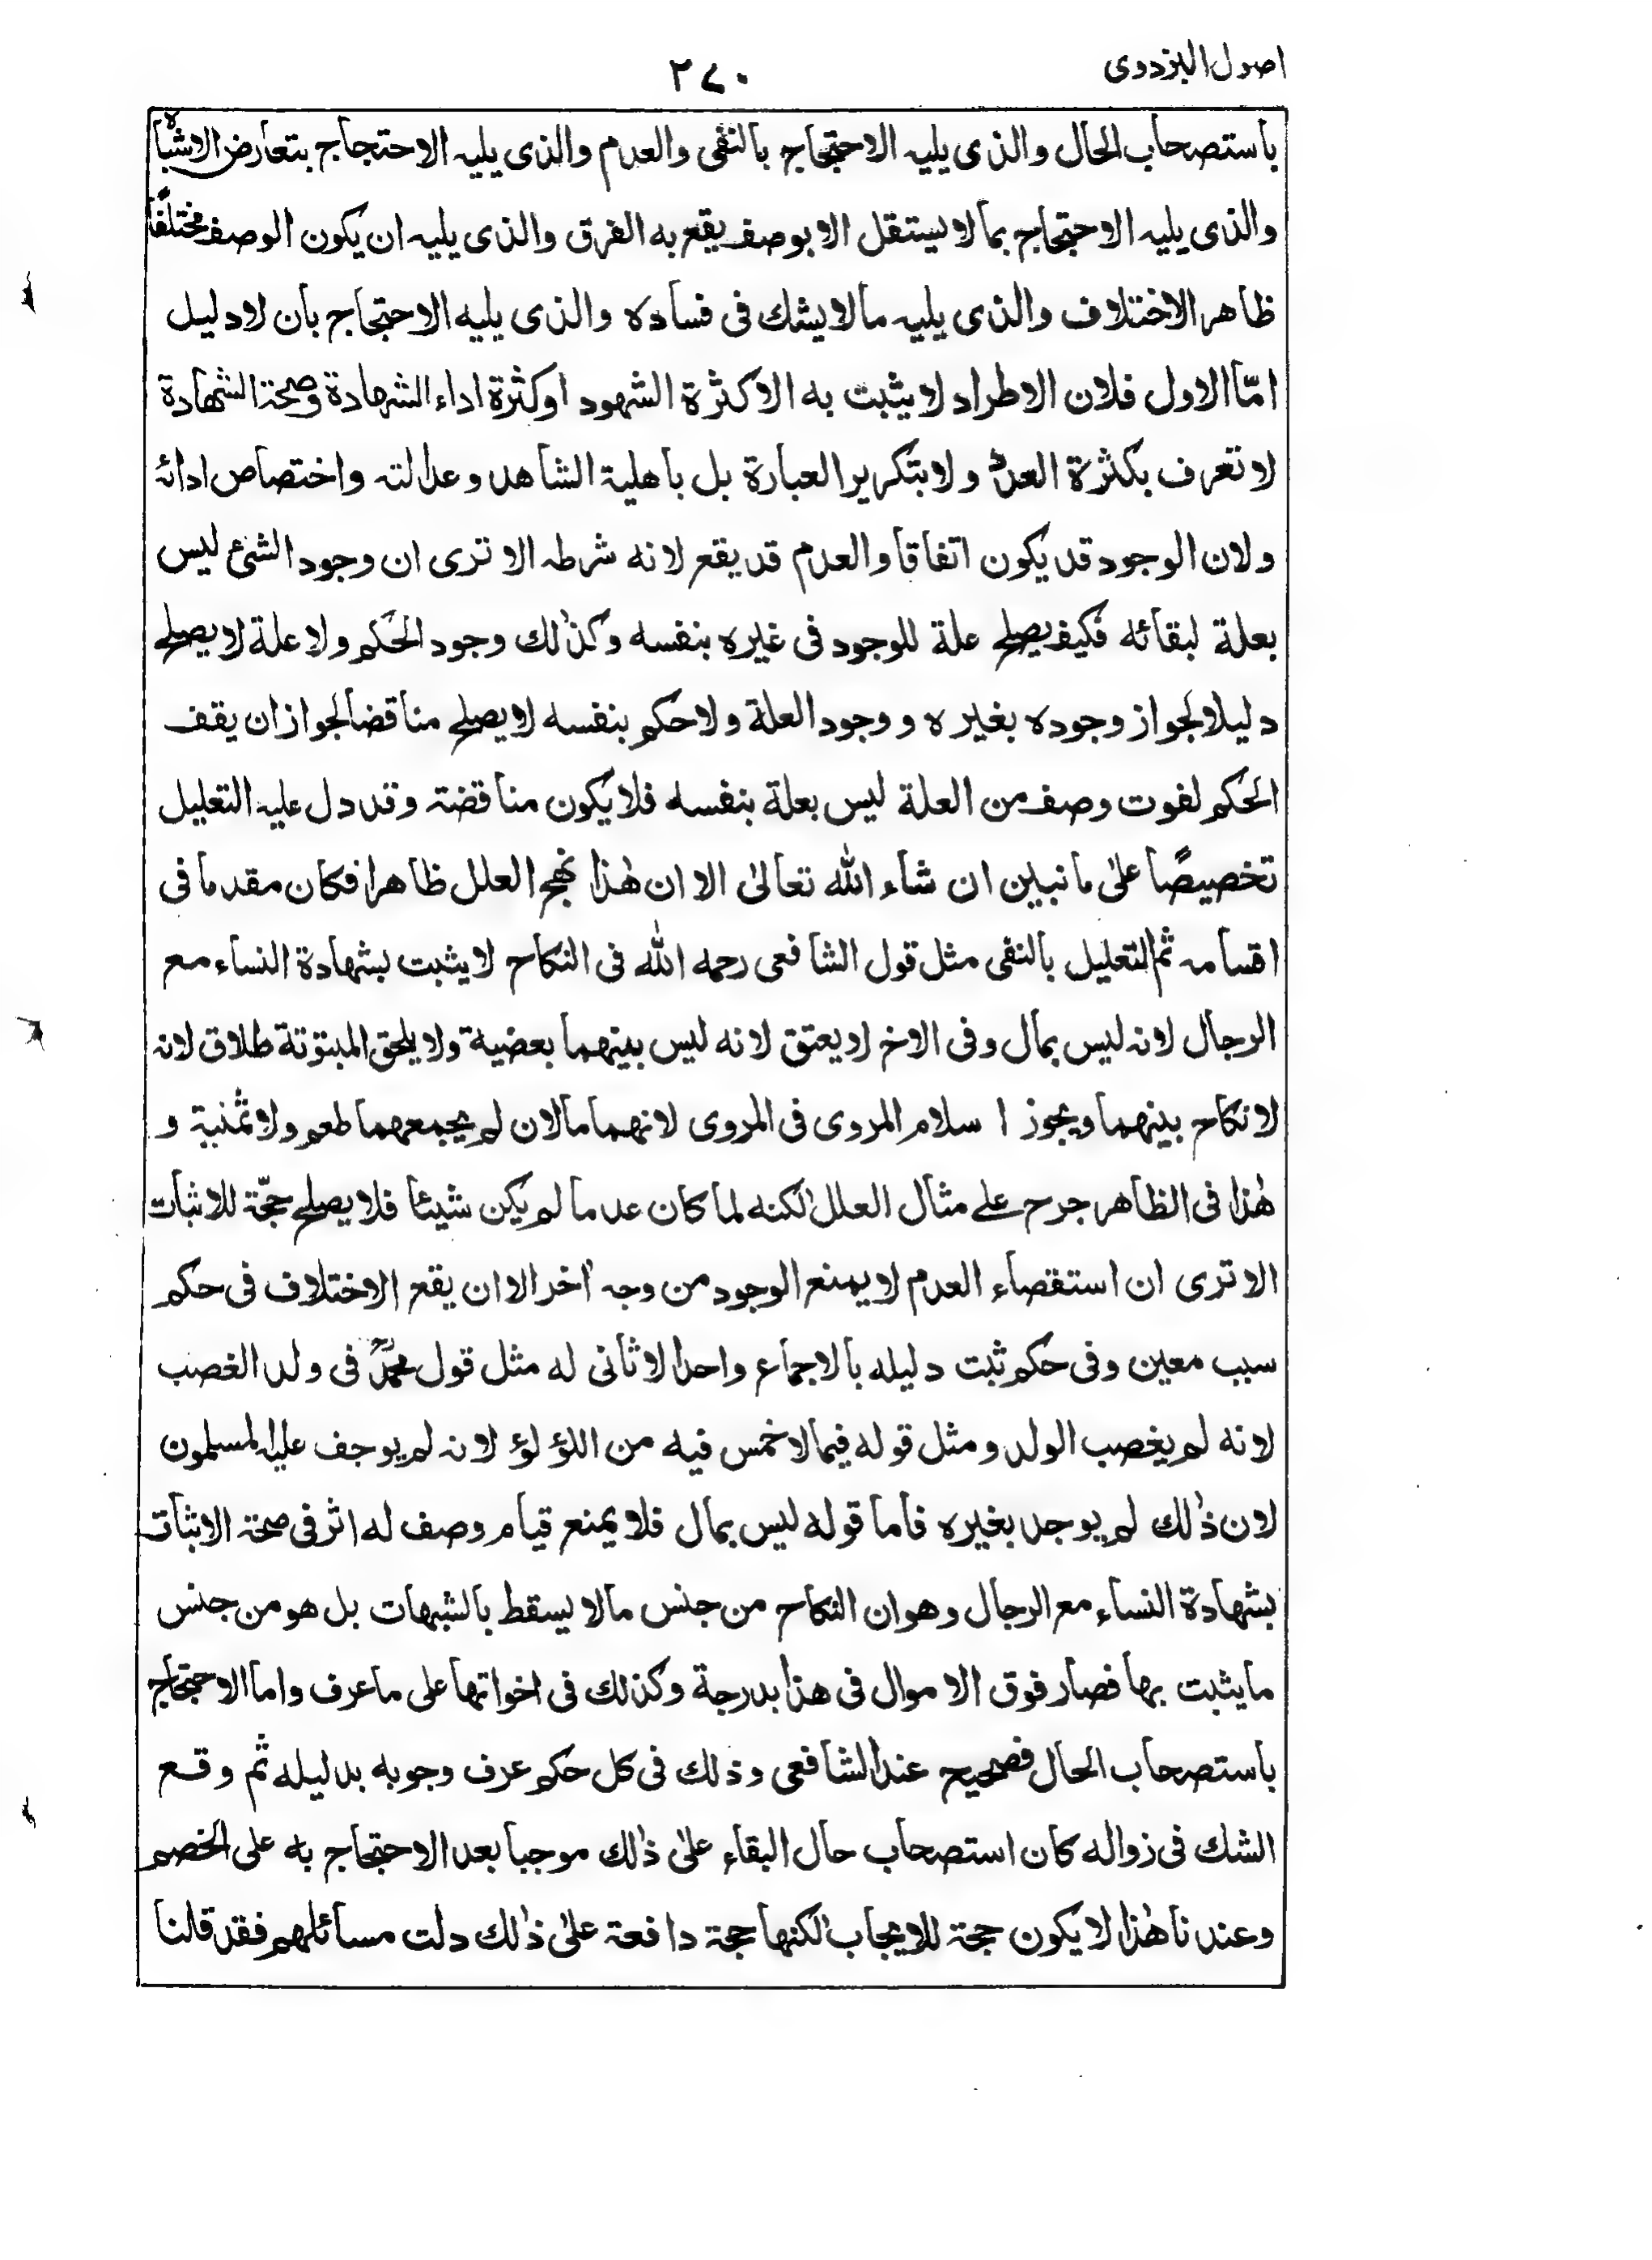 اصول البزدوی
۲۷۰
باستصحاب الحال والذی یلیہ الاحتجاج بالنفی والعدم والذی یلیہ الاحتجاج بتعارض الاشباہ
والذی یلیہ الاحتجاج بما لا یستقل الا بوصف یقع به الفرق والذی یلیہ ان یکون الوصف مختلفًا
ظاهر الاختلاف والذی یلیہ ما لا یشك فی فسادہ والذی یلیه الاحتجاج بان لا دلیل
امّا الاول فلان الاطراد لا یثبت به الا کثرة الشهود او کثرة اداء الشهادة وصحة الشهادة
لا تعرف بکثرة العدد ولا بتکریر العبارة بل باهلیة الشاهد وعدالتہ واختصاص ادائہ
ولان الوجود قد یکون اتفاقا والعدم قد یقع لانه شرطہ الا تری ان وجود الشئ لیس
بعلة لبقائه فکیف یصلح علة للوجود فی غیرہ بنفسه وکذٰلك وجود الحکم ولا علة لا یصلح
دلیلا لجواز وجودہ بغیرہ ووجود العلة ولا حکم بنفسه لا یصلح مناقضا لجواز ان یقف
الحکم لفوت وصف من العلة لیس بعلة بنفسه فلا یکون مناقضة وقد دل علیہ التعلیل
تخصیصًا علٰی ما نبین ان شاء اللّٰه تعالٰی الا ان هٰذا نهج العلل ظاهرا فکان مقدما فی
اقسامہ ثم التعلیل بالنفی مثل قول الشافعی رحمہ اللّٰه فی النکاح لا یثبت بشهادة النساء مع
الرجال لانہ لیس بمال وفی الاخ لا یعتق لانه لیس بینهما بعضیة ولا یلحق المبتوتة طلاق لانہ
لا نکاح بینهما ویجوز اسلام المروی فی المروی لانهما مالان لم یجمعهما طعم ولا ثمنیة و
هٰذا فی الظاهر جرح علے مثال العلل لٰکنه لما کان عدما لم یکن شیئا فلا یصلح حجّة للاثبات
الا تری ان استقصاء العدم لا یمنع الوجود من وجہ اٰخر الا ان یقع الاختلاف فی حکم
سبب معین وفی حکم ثبت دلیله بالاجماع واحدا لا ثانی له مثل قول محمدؒ فی ولد الغصب
لانه لم یغصب الولد ومثل قوله فیما لا خمس فیه من اللؤلؤ لانہ لم یوجف علیہ المسلمون
لان ذٰلك لم یوجد بغیرہ فاما قوله لیس بمال فلا یمنع قیام وصف له اثر فی صحة الاثبات
بشهادة النساء مع الرجال وهو ان النکاح من جنس ما لا یسقط بالشبهات بل هو من جنس
ما یثبت بها فصار فوق الاموال فی هذا بدرجة وکذلك فی اخواتها علی ما عرف واما الاحتجاج
باستصحاب الحال فصحیح عند الشافعی وذلك فی کل حکم عرف وجوبه بدلیله ثم وقع
الشك فی زواله کان استصحاب حال البقاء علٰی ذٰلك موجبا بعد الاحتجاج به علی الخصم
وعندنا هٰذا لا یکون حجة للایجاب لٰکنها حجة دافعة علٰی ذٰلك دلت مسائلهم فقد قلنا